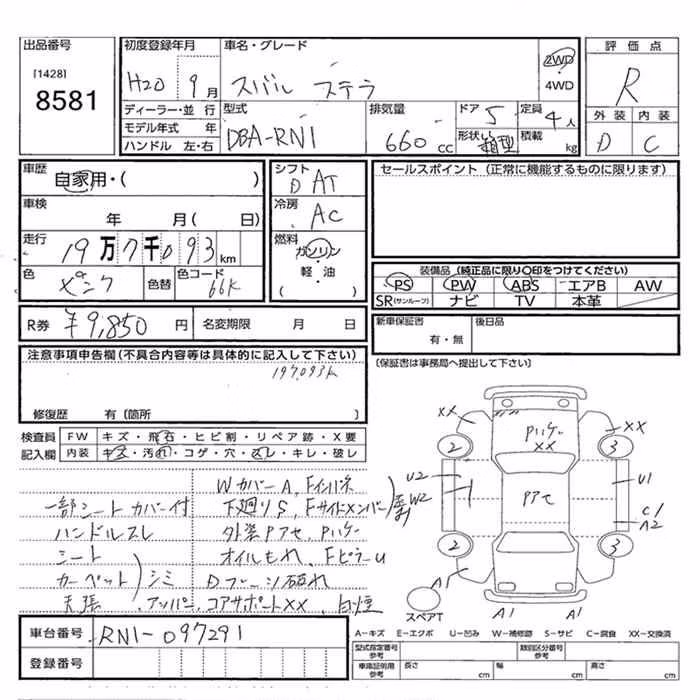 出品番号
[1428]
8581
初度登録年月
H20 9月
車名・グレード
スバル ステラ
2WD
4WD
評価点
R
外装 内装
D C
ディーラー・並行
モデル年式 年
ハンドル 左・右
型式
DBA-RN1
排気量
660 cc
ドア 5
定員 4人
形状 箱型
積載 kg
車歴
自家用・( )
車検
年 月( 日)
走行
19万7千093 km
色
ピンク
色替
色コード
66K
シフト
D AT
冷房
AC
燃料
ガソリン
・
軽・油
( )
セールスポイント (正常に機能するものに限ります)
装備品 (純正品に限り○印をつけてください)
PS PW ABS エアB AW
SR(サンルーフ) ナビ TV 本革
R券 ¥9,850 円 名変期限 月 日
新車保証書
有・無
後日品
(保証書は事務局へ提出して下さい)
注意事項申告欄(不具合内容等は具体的に記入して下さい)
197.093K
修復歴 有(箇所
検査員
記入欄
FW キズ・飛石・ヒビ割・リペア跡・X要
内装 キズ・汚れ・コゲ・穴・スレ・キレ・破レ
Wカバー A、Fインパネ
一部シートカバー付 下廻りS、Fサイドメンバー
ハンドルスレ 外装Pアセ、Pハゲ
シート オイルもれ、FピラーU
カーペット シミ
天張 、アッパー、コアサポートXX、白煙
XX
Pハゲ
XX
XX
2
3
U2
W2
Pアセ
U1
C1
A2
2
3
A1
A1
A1
スペアT
A-キズ E-エクボ U-凹み W-補修跡 S-サビ C-腐食 XX-交換済
車台番号 RN1-097291
登録番号
型式指定番号
参考
類別区分番号
参考
車庫証明用
参考
長さ cm
幅 cm
高さ cm